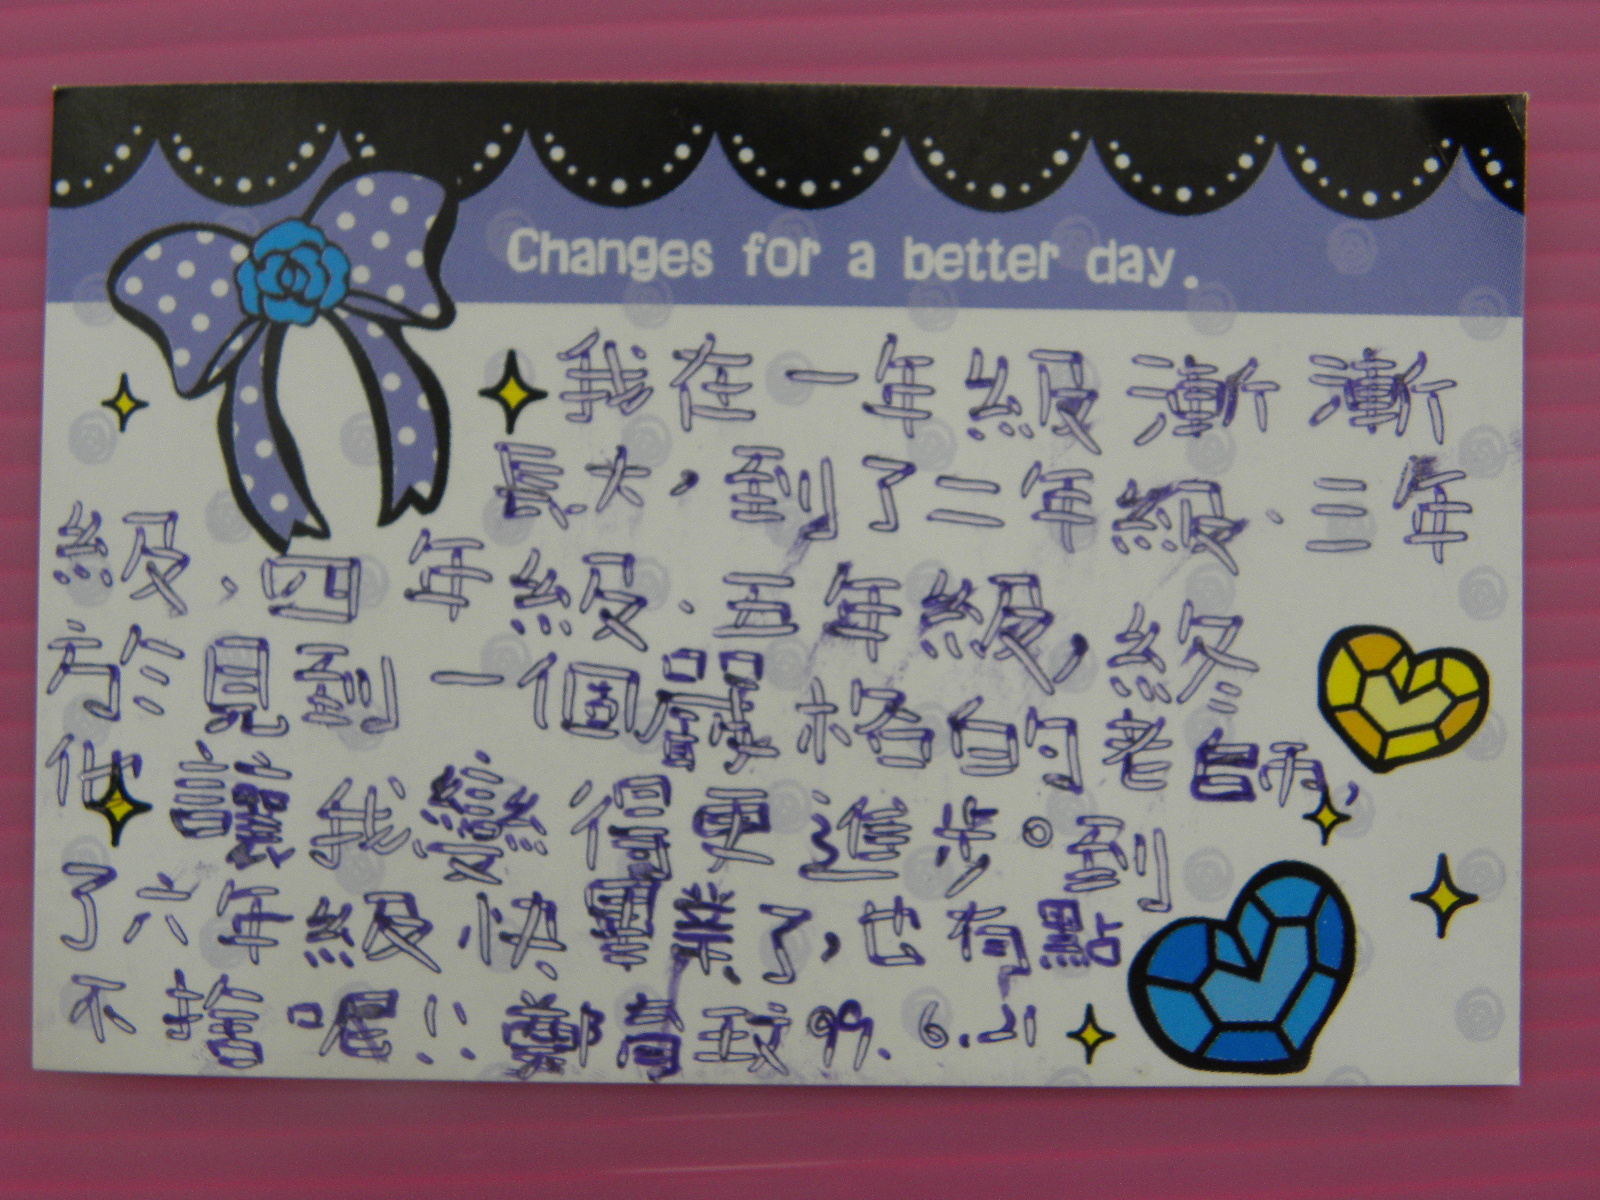 Changes for a better day.
我在一年級漸漸
長大，到了二年級、三年
級、四年級、五年級，終
於見到一個嚴格的老師，
他讓我變得更進步。到
了六年級快畢業了，也有點
不捨喔!! 鄭育政 99. 6. 21